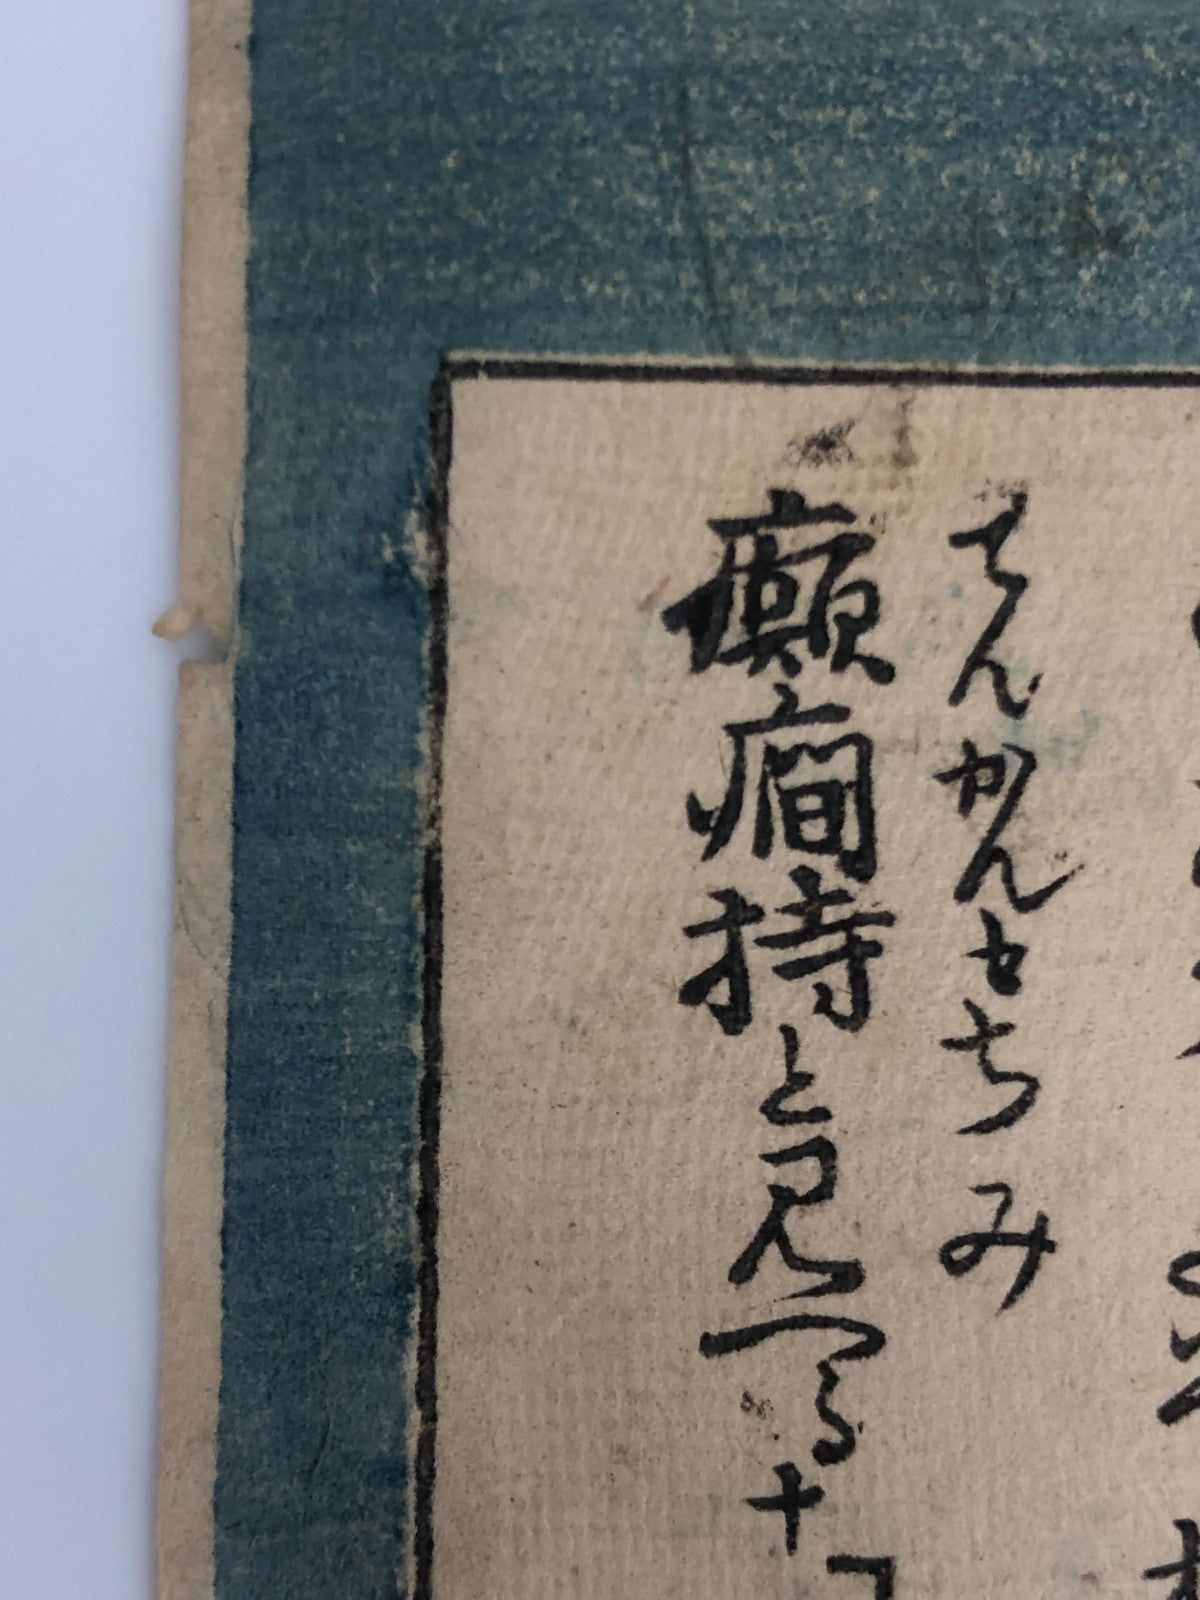 てんかんもちみ
癲癇持と見へる十